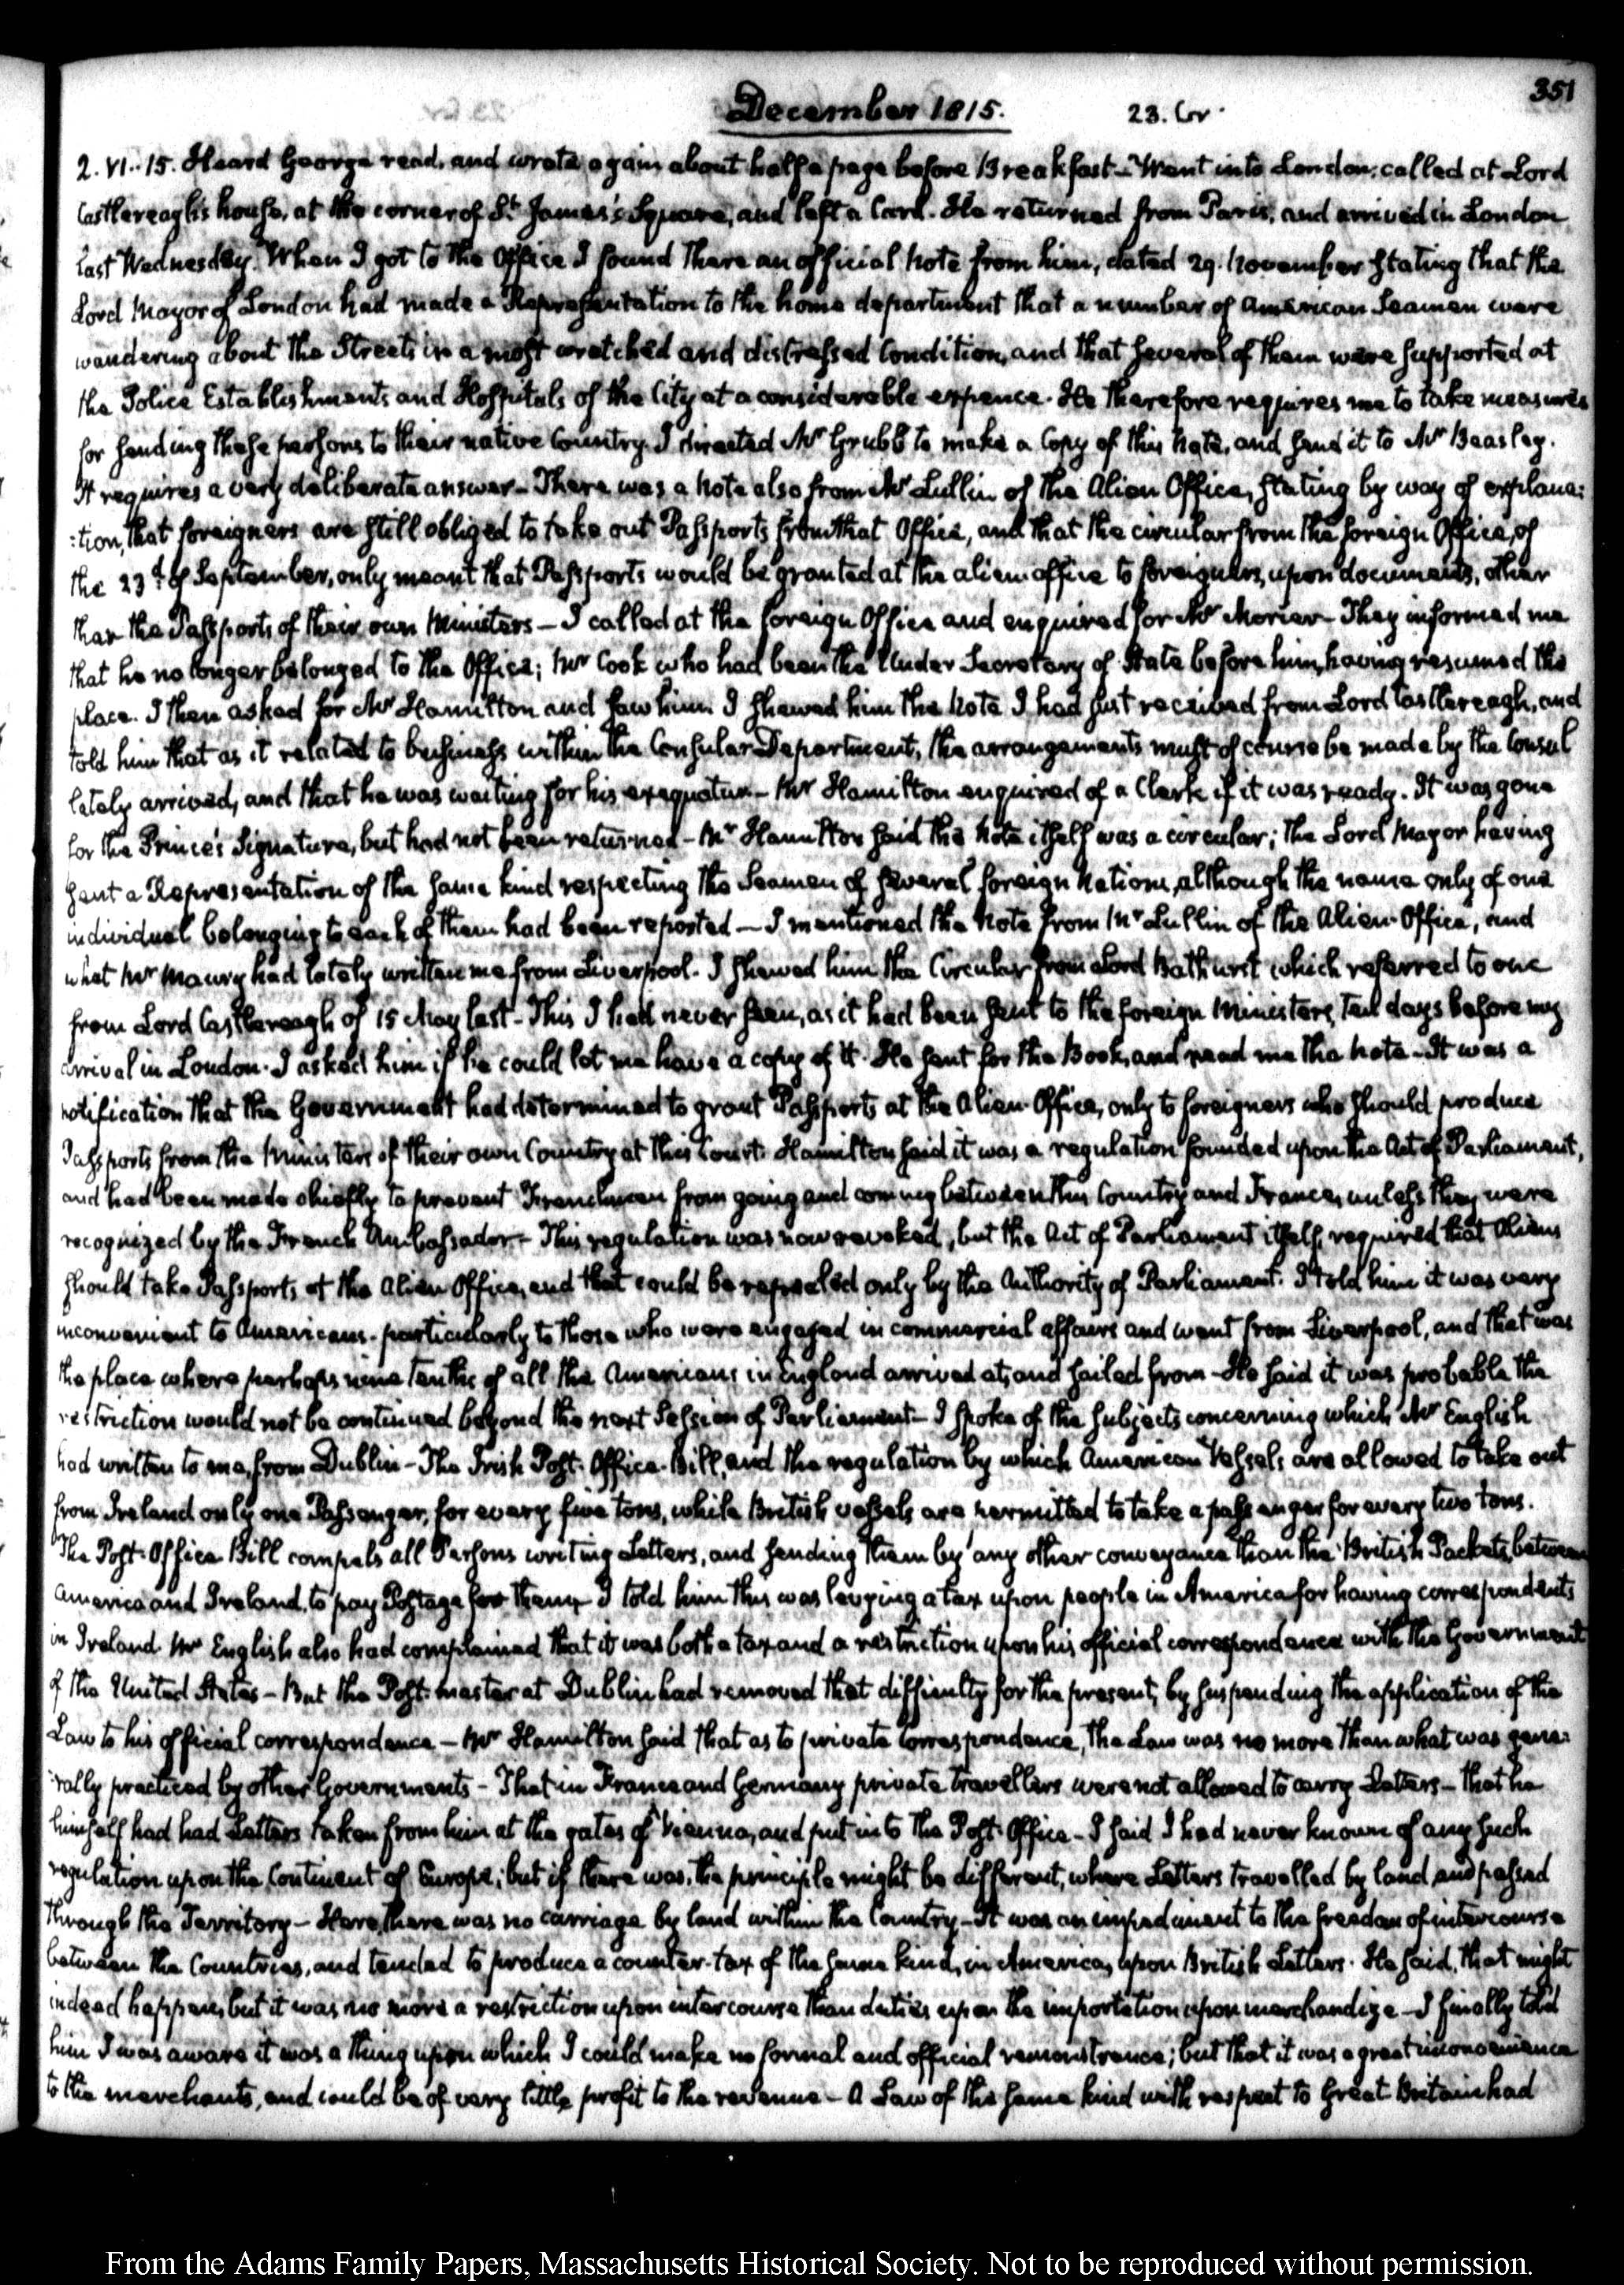 351
December 1815. 23. Gr.
2. VI..15. Heard George read, and wrote again about half a page before Breakfast – Went into London; called at Lord
Castlereagh's house, at the corner of St. James's Square, and left a Card. He returned from Paris, and arrived in London
last Wednesday. When I got to the Office I found there an official Note from him, dated 29. November stating that the
Lord Mayor of London had made a Representation to the home department that a number of American Seamen were
wandering about the Streets in a most wretched and distressed Condition, and that several of them were supported at
the Police Establishments and Hospitals of the City at a considerable expence. He therefore requires me to take measures
for sending these persons to their native Country. I directed Mr Grubb to make a Copy of this Note, and send it to Mr Beasley.
It requires a very deliberate answer – There was a Note also from Mr Lullin of the Alien Office, stating by way of explana:
:tion, that foreigners are still obliged to take out Passports from that Office, and that the circular from the foreign Office, of
the 23d of September, only meant that Passports would be granted at the alien office to foreigners, upon documents, other
than the Passports of their own Ministers – I called at the foreign Office and enquired for Mr Morier – They informed me
that he no longer belonged to the Office; Mr Cook who had been the Under Secretary of State before him, having resumed the
place. I then asked for Mr Hamilton and saw him. I shewed him the Note I had just received from Lord Castlereagh, and
told him that as it related to business within the Consular Department, the arrangements must of course be made by the Consul
lately arrived, and that he was waiting for his exequatur – Mr Hamilton enquired of a Clerk if it was ready. It was gone
for the Prince's Signature, but had not been returned – Mr Hamilton said the Note itself was a circular; the Lord Mayor having
sent a Representation of the same kind respecting the Seamen of several foreign Nations, although the name only of one
individual belonging to each of them had been reported – I mentioned the Note from Mr Lullin of the Alien-Office, and
what Mr Maury had lately written me from Liverpool. I shewed him the Circular from Lord Bathurst which referred to one
from Lord Castlereagh of 15 May last – This I had never seen, as it had been sent to the foreign Ministers, ten days before my
arrival in London. I asked him if he could let me have a copy of it. He sent for the Book, and read me the Note – It was a
notification that the Government had determined to grant Passports at the Alien-Office, only to foreigners who should produce
Passports from the Ministers of their own Country at this Court. Hamilton said it was a regulation founded upon the Act of Parliament,
and had been made chiefly to prevent Frenchmen from going and coming between this Country and France, unless they were
recognized by the French Ambassador – This regulation was now revoked, but the Act of Parliament itself, required that Aliens
should take Passports at the Alien Office, and that could be repealed only by the Authority of Parliament. I told him it was very
inconvenient to Americans. particularly to those who were engaged in commercial affairs and went from Liverpool, and that was
the place where perhaps nine tenths of all the Americans in England arrived at, and sailed from – He said it was probable the
restriction would not be continued beyond the next Session of Parliament – I spoke of the subjects concerning which Mr English
had written to me, from Dublin – The Irish Post-Office-Bill, and the regulation by which American Vessels are allowed to take out
from Ireland only one Passenger, for every five tons, while British vessels are permitted to take a passenger for every two tons.
The Post-Office Bill compels all Persons writing Letters, and sending them by any other conveyance than the British Packets, between
America and Ireland, to pay Postage for them – I told him this was levying a tax upon people in America for having correspondents
in Ireland. Mr English also had complained that it was both a tax and a restriction upon his official correspondence with the Government
of the United States – But the Post-master at Dublin had removed that difficulty for the present, by suspending the application of the
Law to his official correspondence – Mr Hamilton said that as to private Correspondence, the Law was no more than what was gene:
:rally practiced by other Governments – That in France and Germany private travellers were not allowed to carry Letters – that he
himself had had Letters taken from him at the gates of Vienna, and put into the Post-Office – I said I had never known of any such
regulation upon the Continent of Europe; but if there was, the principle might be different, where Letters travelled by land, and passed
through the Territory – Here, there was no carriage by land within the Country – It was an impediment to the freedom of intercourse
between the Countries, and tended to produce a counter-tax of the same kind, in America, upon British Letters. He said, that might
indeed happen, but it was no more a restriction upon intercourse than duties upon the importation upon merchandize – I finally told
him I was aware it was a thing upon which I could make no formal and official remonstrance; but that it was a great inconvenience
to the merchants, and could be of very little profit to the revenue – A Law of the same kind with respect to Great-Britain had
From the Adams Family Papers, Massachusetts Historical Society. Not to be reproduced without permission.